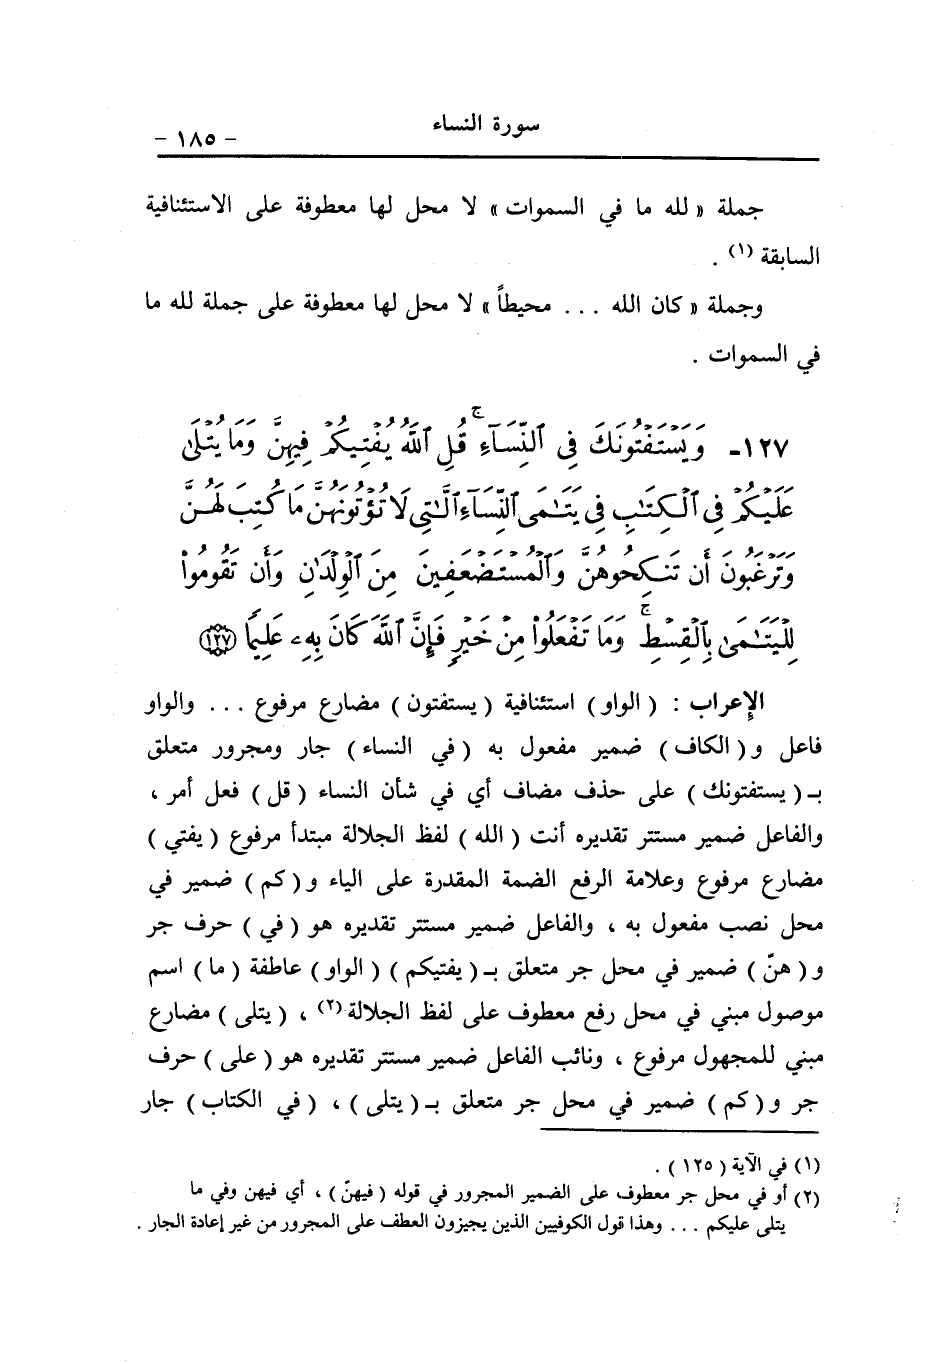 سورة النساء
- ١٨٥ -
جملة « لله ما في السموات » لا محل لها معطوفة على الاستئنافية
السابقة (١) .
وجملة « كان الله ... محيطاً » لا محل لها معطوفة على جملة لله ما
في السموات .
١٢٧- وَيَسْتَفْتُونَكَ فِى ٱلنِّسَآءِۖ قُلِ ٱللَّهُ يُفْتِيكُمْ فِيهِنَّ وَمَا يُتْلَىٰ
عَلَيْكُمْ فِى ٱلْكِتَٰبِ فِى يَتَٰمَى ٱلنِّسَآءِ ٱلَّٰتِى لَا تُؤْتُونَهُنَّ مَا كُتِبَ لَهُنَّ
وَتَرْغَبُونَ أَن تَنكِحُوهُنَّ وَٱلْمُسْتَضْعَفِينَ مِنَ ٱلْوِلْدَٰنِ وَأَن تَقُومُوا۟
لِلْيَتَٰمَىٰ بِٱلْقِسْطِۚ وَمَا تَفْعَلُوا۟ مِنْ خَيْرٍ فَإِنَّ ٱللَّهَ كَانَ بِهِۦ عَلِيمًا ١٢٧
الإعراب : ( الواو ) استئنافية ( يستفتون ) مضارع مرفوع ... والواو
فاعل و( الكاف ) ضمير مفعول به ( في النساء ) جار ومجرور متعلق
بـ ( يستفتونك ) على حذف مضاف أي في شأن النساء ( قل ) فعل أمر ،
والفاعل ضمير مستتر تقديره أنت ( الله ) لفظ الجلالة مبتدأ مرفوع ( يفتي )
مضارع مرفوع وعلامة الرفع الضمة المقدرة على الياء و( كم ) ضمير في
محل نصب مفعول به ، والفاعل ضمير مستتر تقديره هو ( في ) حرف جر
و( هنّ ) ضمير في محل جر متعلق بـ ( يفتيكم ) ( الواو ) عاطفة ( ما ) اسم
موصول مبني في محل رفع معطوف على لفظ الجلالة (٢) ، ( يتلى ) مضارع
مبني للمجهول مرفوع ، ونائب الفاعل ضمير مستتر تقديره هو ( على ) حرف
جر و( كم ) ضمير في محل جر متعلق بـ ( يتلى ) ، ( في الكتاب ) جار
(١) في الآية ( ١٢٥ ) .
(٢) أو في محل جر معطوف على الضمير المجرور في قوله ( فيهنّ ) ، أي فيهن وفي ما
يتلى عليكم ... وهذا قول الكوفيين الذين يجيزون العطف على المجرور من غير إعادة الجار .